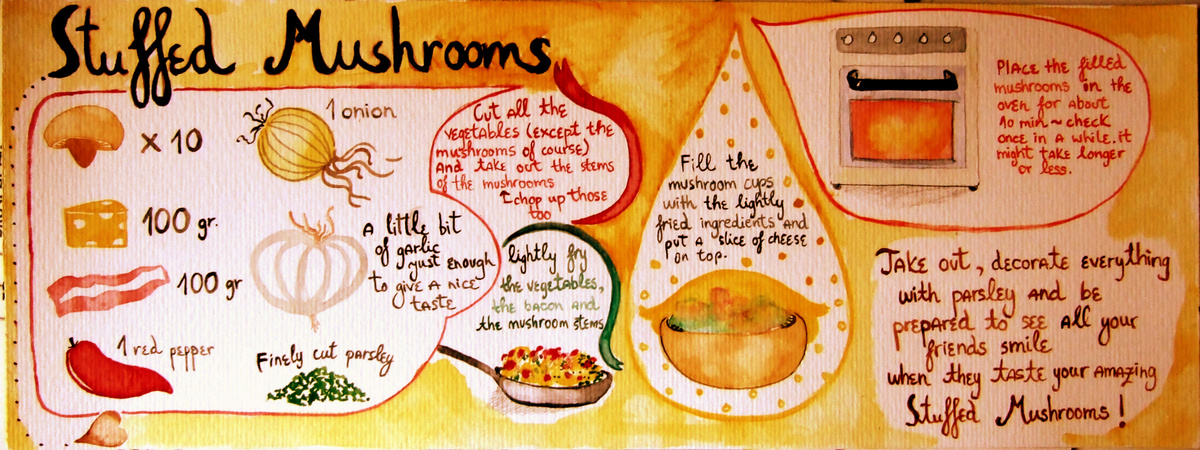 Stuffed Mushrooms
x 10
1 onion
100 gr.
A little bit
of garlic
just enough
to give a nice
taste
100 gr
1 red pepper
Finely cut parsley
Cut all the
vegetables (except the
mushrooms of course)
And take out the stems
of the mushrooms
↑chop up those
too
lightly fry
the vegetables,
the bacon and
the mushroom stems
Fill the
mushroom cups
with the lightly
fried ingredients and
put a slice of cheese
on top.
Place the filled
mushrooms in the
oven for about
10 min ~ check
once in a while. it
might take longer
or less.
Take out, decorate everything
with parsley and be
prepared to see all your
friends smile
when they taste your amazing
Stuffed Mushrooms!